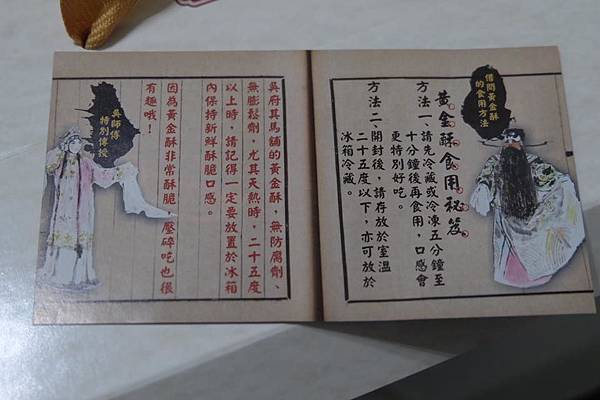 借問黃金酥
的食用方法
黃金酥食用秘笈
方法一、請先冷藏或冷凍五分鐘至
十分鐘後再食用，口感會
更特別好吃。
方法二、開封後，請存放於室溫
二十五度以下，亦可放於
冰箱冷藏。
吳府其馬舖的黃金酥，無防腐劑、
無膨鬆劑，尤其天熱時，二十五度
以上時，請記得一定要放置於冰箱
內保持新鮮酥脆口感。
因為黃金酥非常酥脆，壓碎吃也很
有趣哦！
吳師傅
特別傳授